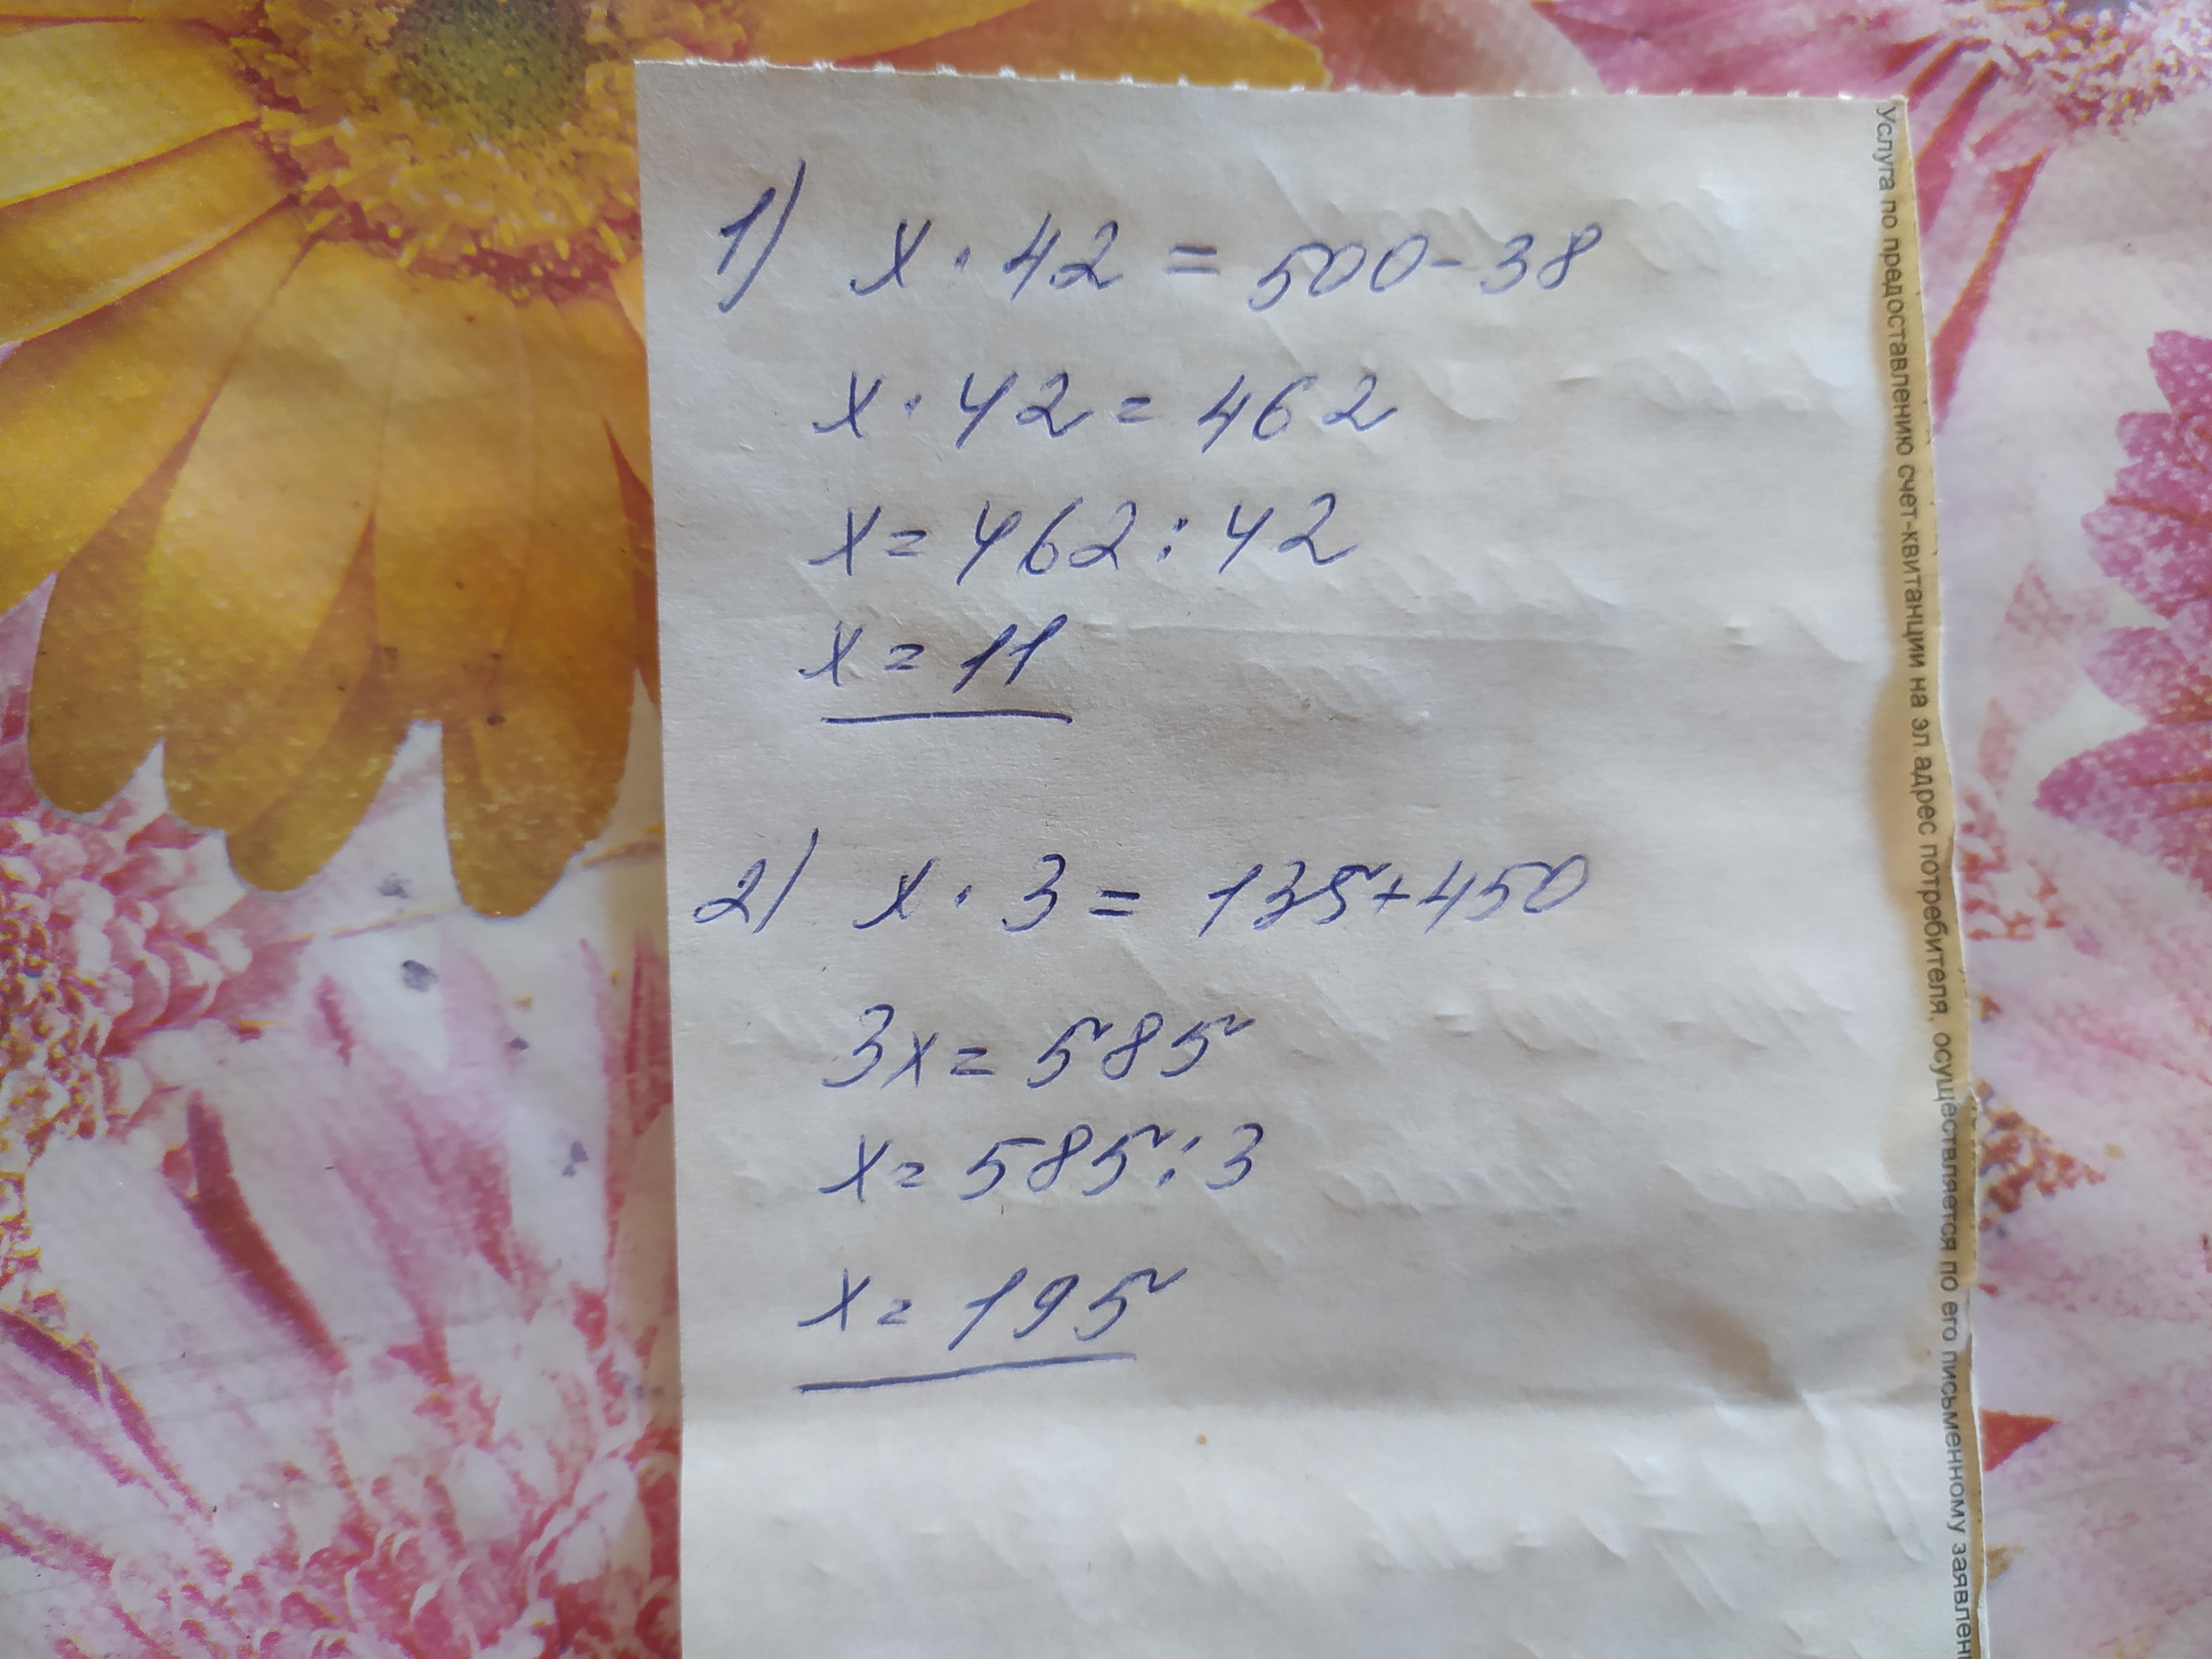 1) x · 42 = 500 - 38
x · 42 = 462
x = 462 : 42
x = 11
2) x · 3 = 135 + 450
3x = 585
x = 585 : 3
x = 195
Услуга по предоставлению счет-квитанции на эл адрес потребителя, осуществляется по его письменному заявлен